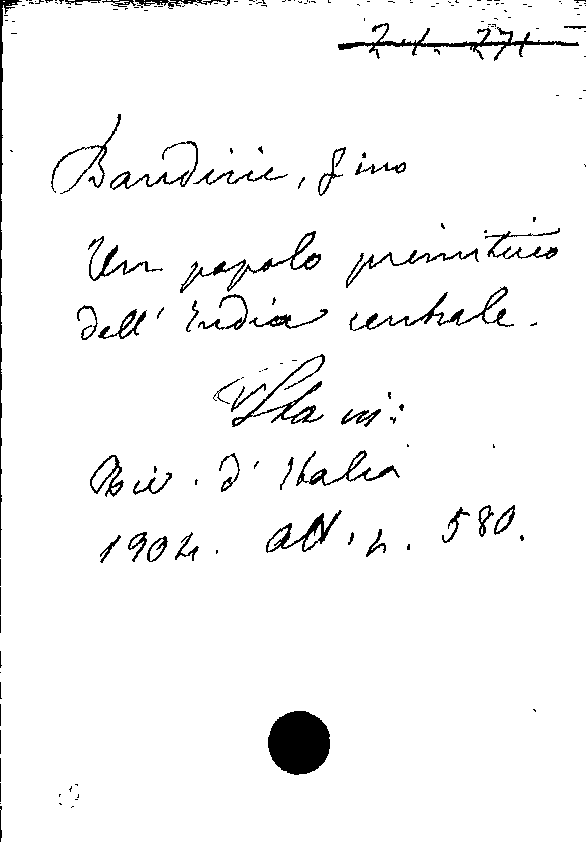 Bandini, Gino
Un popolo primitivo
dell' India centrale.
Sta in:
Riv. d' Italia
1904. Ott. p. 580.